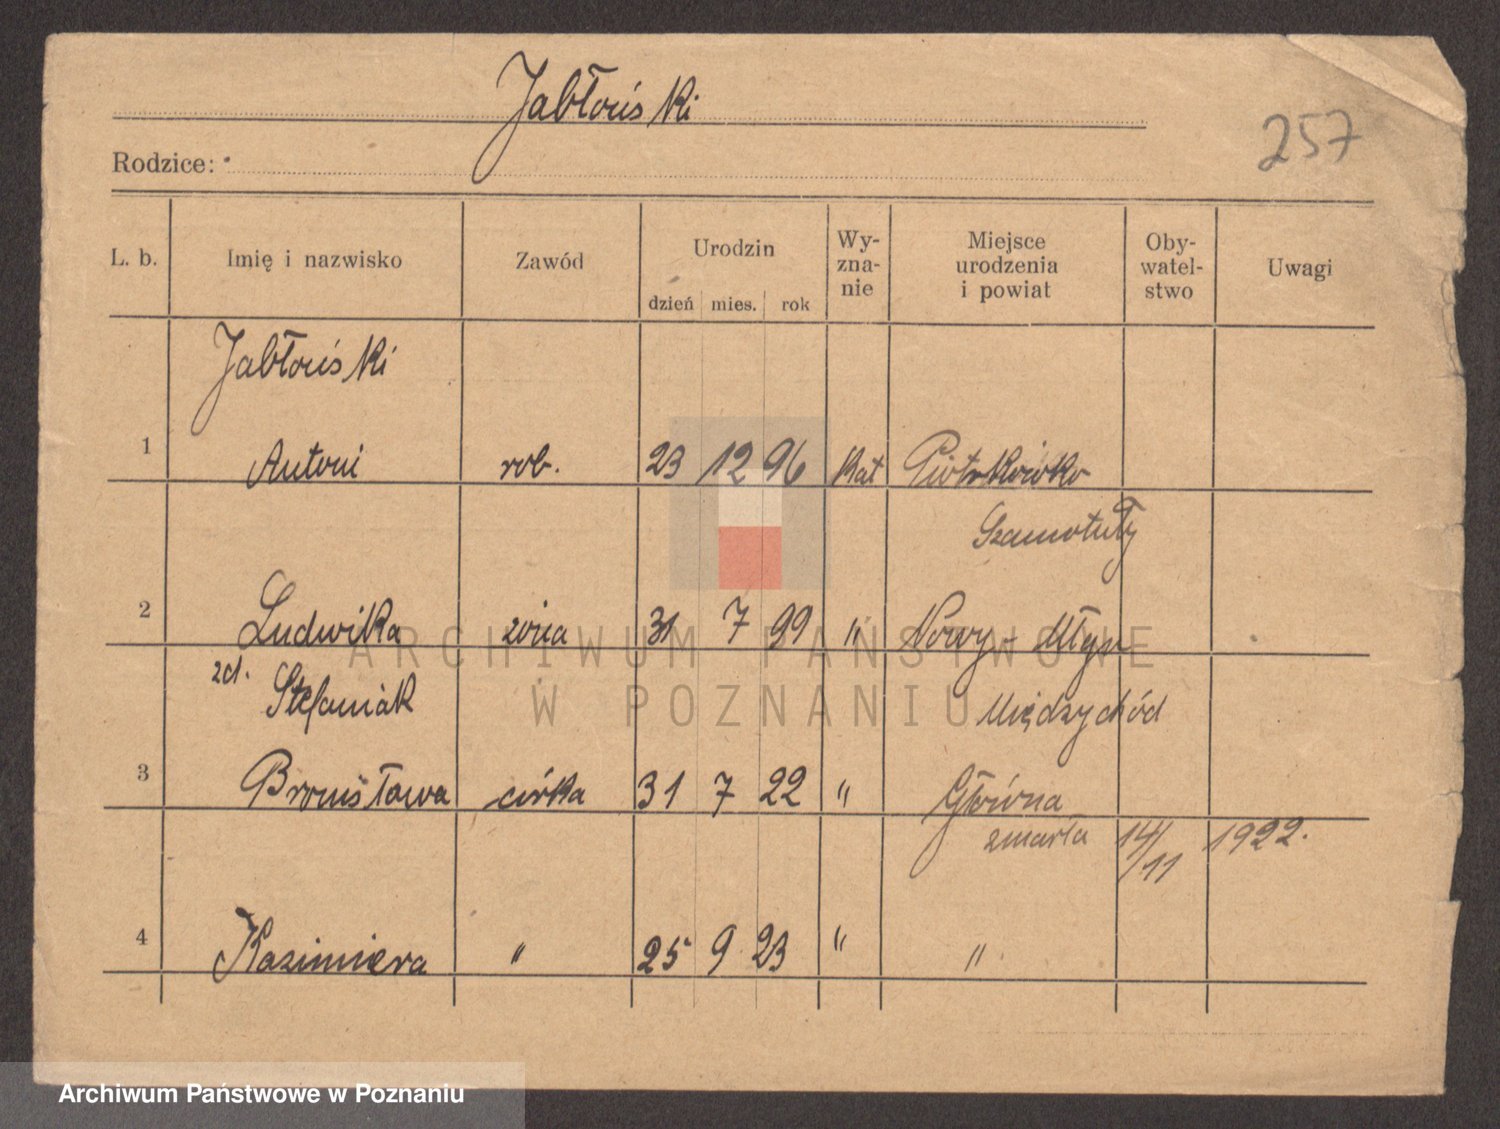 Jabłoński
257
Rodzice:
L. b. Imię i nazwisko Zawód Urodzin dzień mies. rok Wy-zna-nie Miejsce urodzenia i powiat Oby-watel-stwo Uwagi
Jabłoński
1 Antoni rob. 23 12 96 kat Piotrkówko
Szamotuły
2 Ludwika żona 31 7 99 " Nowy-Młyn
zd. Stefaniak Międzychód
3 Bronisława córka 31 7 22 " Główna
zmarła 14/11 1922.
4 Kazimiera " 25 9 23 " "
ARCHIWUM PAŃSTWOWE
W POZNANIU
Archiwum Państwowe w Poznaniu